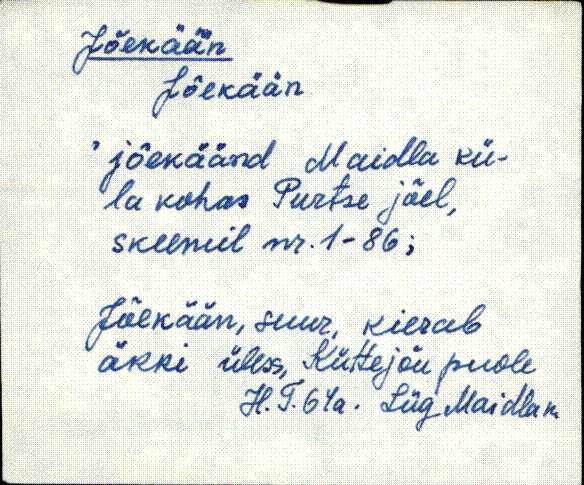 Jõekään
Jõekään
'jõekäänd Maidla kü-
la kohas Purtse jõel,
skeemil nr. 1-86;
Jõekään, suur, kierab
äkki üless, Küttejõu puole
H. T. 61a. Lüg Maidla k